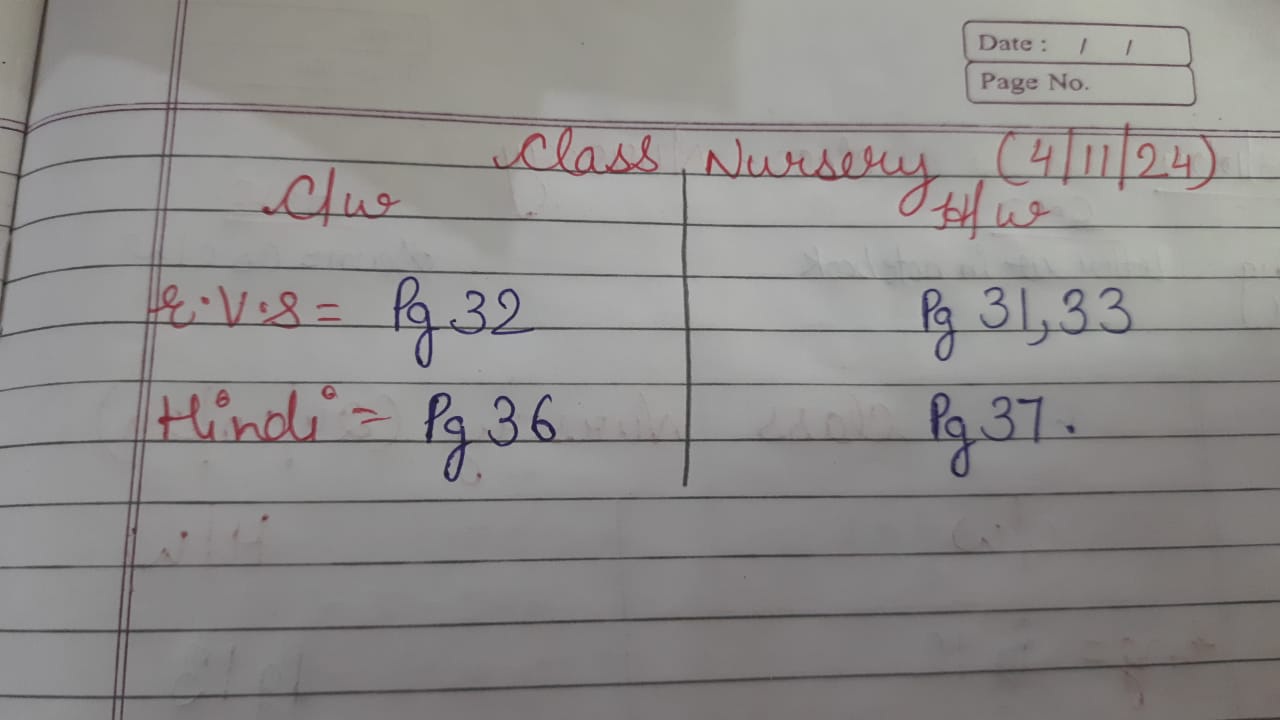 Date : / /
Page No.
Class Nursery (4/11/24)
C/w H/w
E.V.S = Pg 32 Pg 31, 33
Hindi = Pg 36 Pg 37.